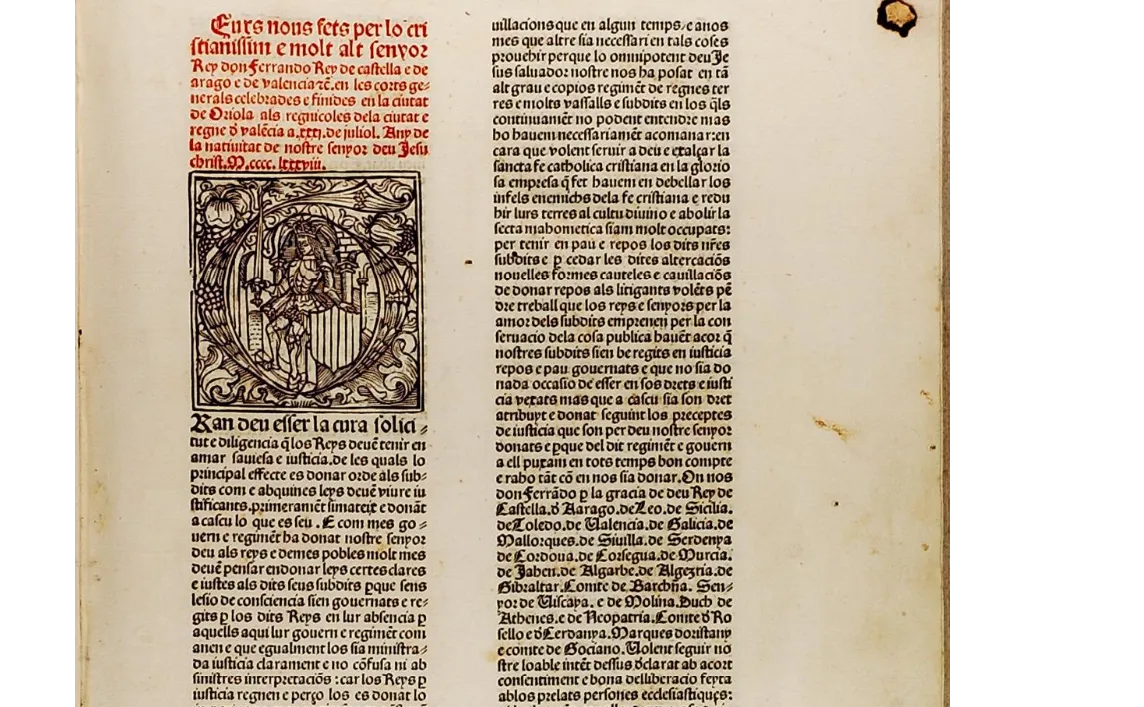 Furs nous fets per lo cri
stianissim e molt alt senyor
Rey don Ferrando Rey de castella e de
arago e de valencia ⁊c̃.en les corts ge⸗
nerals celebrades e finides en la ciutat
de Oriola als regnicoles dela ciutat e
regne d̄ valẽcia a.xxxj.de juliol. Any de
la natiuitat de nostre senyor deu Jesu
christ.M.cccc.lxxxviij.
Ran deu esser la cura solici⸗
tut e diligencia q̃ los Reys deuẽ tenir en
amar sauiesa e iusticia.de les quals lo
principal effecte es donar orde als sub⸗
dits com e abquines leys deuẽ viure iu
stificants.primeramẽt simateix e donãt
a cascu lo que es seu . E com mes go⸗
uern e regimẽt ha donat nostre senyor
deu als reys e demes pobles molt mes
deuẽ pensar endonar leys certes clares
e iustes als dits seus subdits ꝑque sens
lesio de consciencia sien gouernats e re⸗
gits ꝑ los dits Reys en lur absencia ꝑ
aquells aqui lur gouern e regimẽt com
anen e que egualment los sia ministra⸗
da iusticia clarament e no cõfusa ni ab
sinistres interpretaciõs : car los Reys ꝑ
iusticia regnen e perço los es donat lo
uillacions que en algun temps e anos
mes que altre sia necessari en tals coses
prouehir perque lo omnipotent deu Je
sus saluador nostre nos ha posat en tã
alt grau e copios regimẽt de regnes ter
res e molts vassalls e subdits en los q̃ls
continuamẽt no podent entendre mas
ho hauem necessariamẽt acomanar:en
cara que volent seruir a deu e exalçar la
sancta fe catholica cristiana en la glorio
sa empresa q̃ fet hauem en debellar los
infels enemichs dela fe cristiana e redu
hir lurs terres al cultu diuino e abolir la
secta mahometica siam molt occupats:
per tenir en pau e repos los dits nr̃es
subdits e ꝑ cedar les dites altercaciõs
nouelles formes cauteles e cauillaciõs
de donar repos als litigants volẽts pẽ
dre treball que los reys e senyors per la
amor dels subdits emprenen per la con
seruacio dela cosa publica hauẽt acor q̃
nostres subdits sien be regits en iusticia
repos e pau gouernats e que no sia do
nada occasio de esser en sos drets e iusti
cia vexats mas que a cascu sia son dret
atribuyt e donat seguint los preceptes
de iusticia que son per deu nostre senyor
donats e ꝑque del dit regimẽt e gouern
a ell puxam en tots temps bon compte
e raho tãt cõ en nos sia donar. On nos
don Ferrãdo ꝑ la gracia de deu Rey de
Castella.d̄ Aarago.de Leo.de Sicilia.
de Toledo.de Ualencia.de Galicia.de
Mallorques.de Siuilla.de Serdenya
de Cordoua.de Corsegua.de Murcia.
de Jahen.de Algarbe.de Algezria.de
Gibraltar.Comte de Barchña. Sen⸗
yor de Uiscaya. e de Molina.Duch de
Athenes.e de Neopatria.Comte d̄ Ro
sello e d̄ Cerdanya.Marques doristany
e comte de Gociano.Uolent seguir no
stre loable intẽt dessus d̄clarat ab acort
consentiment e bona delliberacio feyta
ab los prelats persones ecclesiastiques: